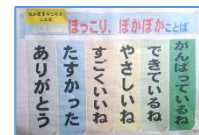 ほっこり、ぽかぽかことば
がんばっているね
できているね
やさしいね
すごくいいね
たすかった
ありがとう